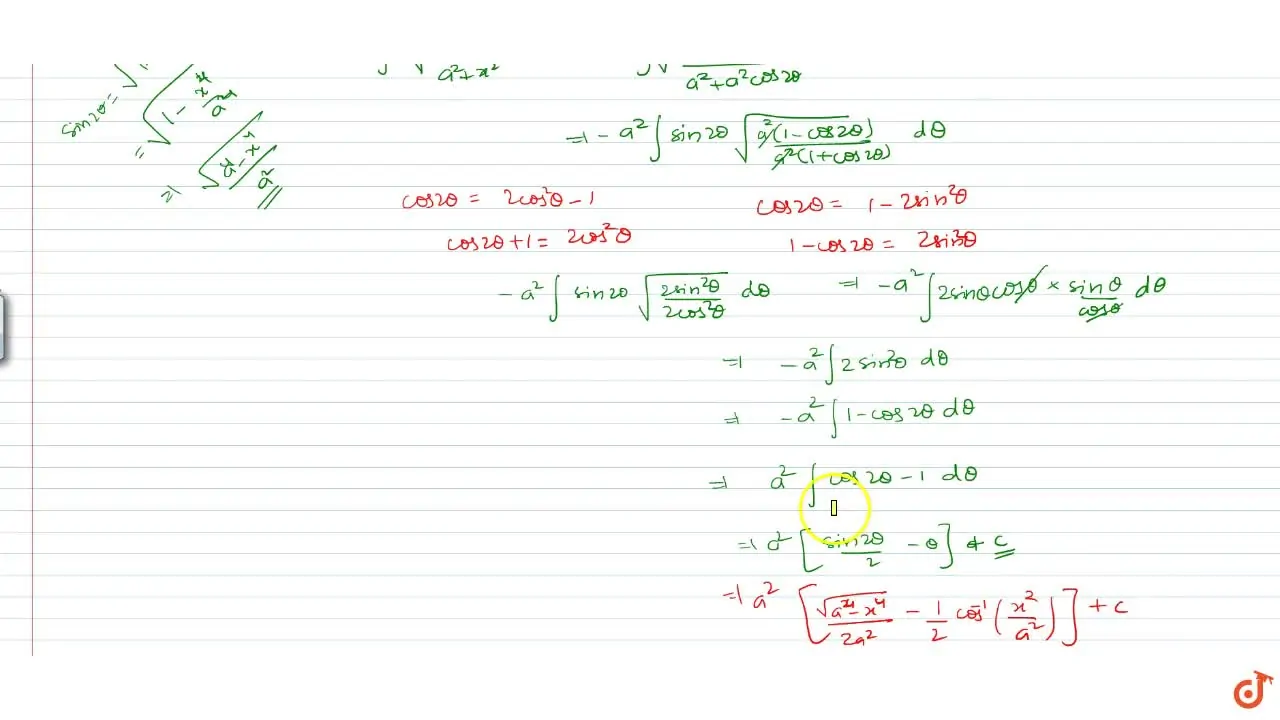 a²+x²
a²+a²cos2θ
sin2θ=
= √1-x⁴/a⁴
⇒ √a⁴-x⁴/a²
⇒ -a² ∫ sin2θ √a²(1-cos2θ)/a²(1+cos2θ) dθ
cos2θ = 2cos²θ-1
cos2θ = 1-2sin²θ
cos2θ+1 = 2cos²θ
1-cos2θ = 2sin²θ
-a² ∫ sin2θ √2sin²θ/2cos²θ dθ
⇒ -a² ∫ 2sinθcosθ × sinθ/cosθ dθ
⇒ -a² ∫ 2sin²θ dθ
⇒ -a² ∫ 1-cos2θ dθ
⇒ a² ∫ cos2θ-1 dθ
⇒ a² [sin2θ/2 - θ] + c
⇒ a² [√a⁴-x⁴/2a² - 1/2 cos⁻¹(x²/a²)] + c